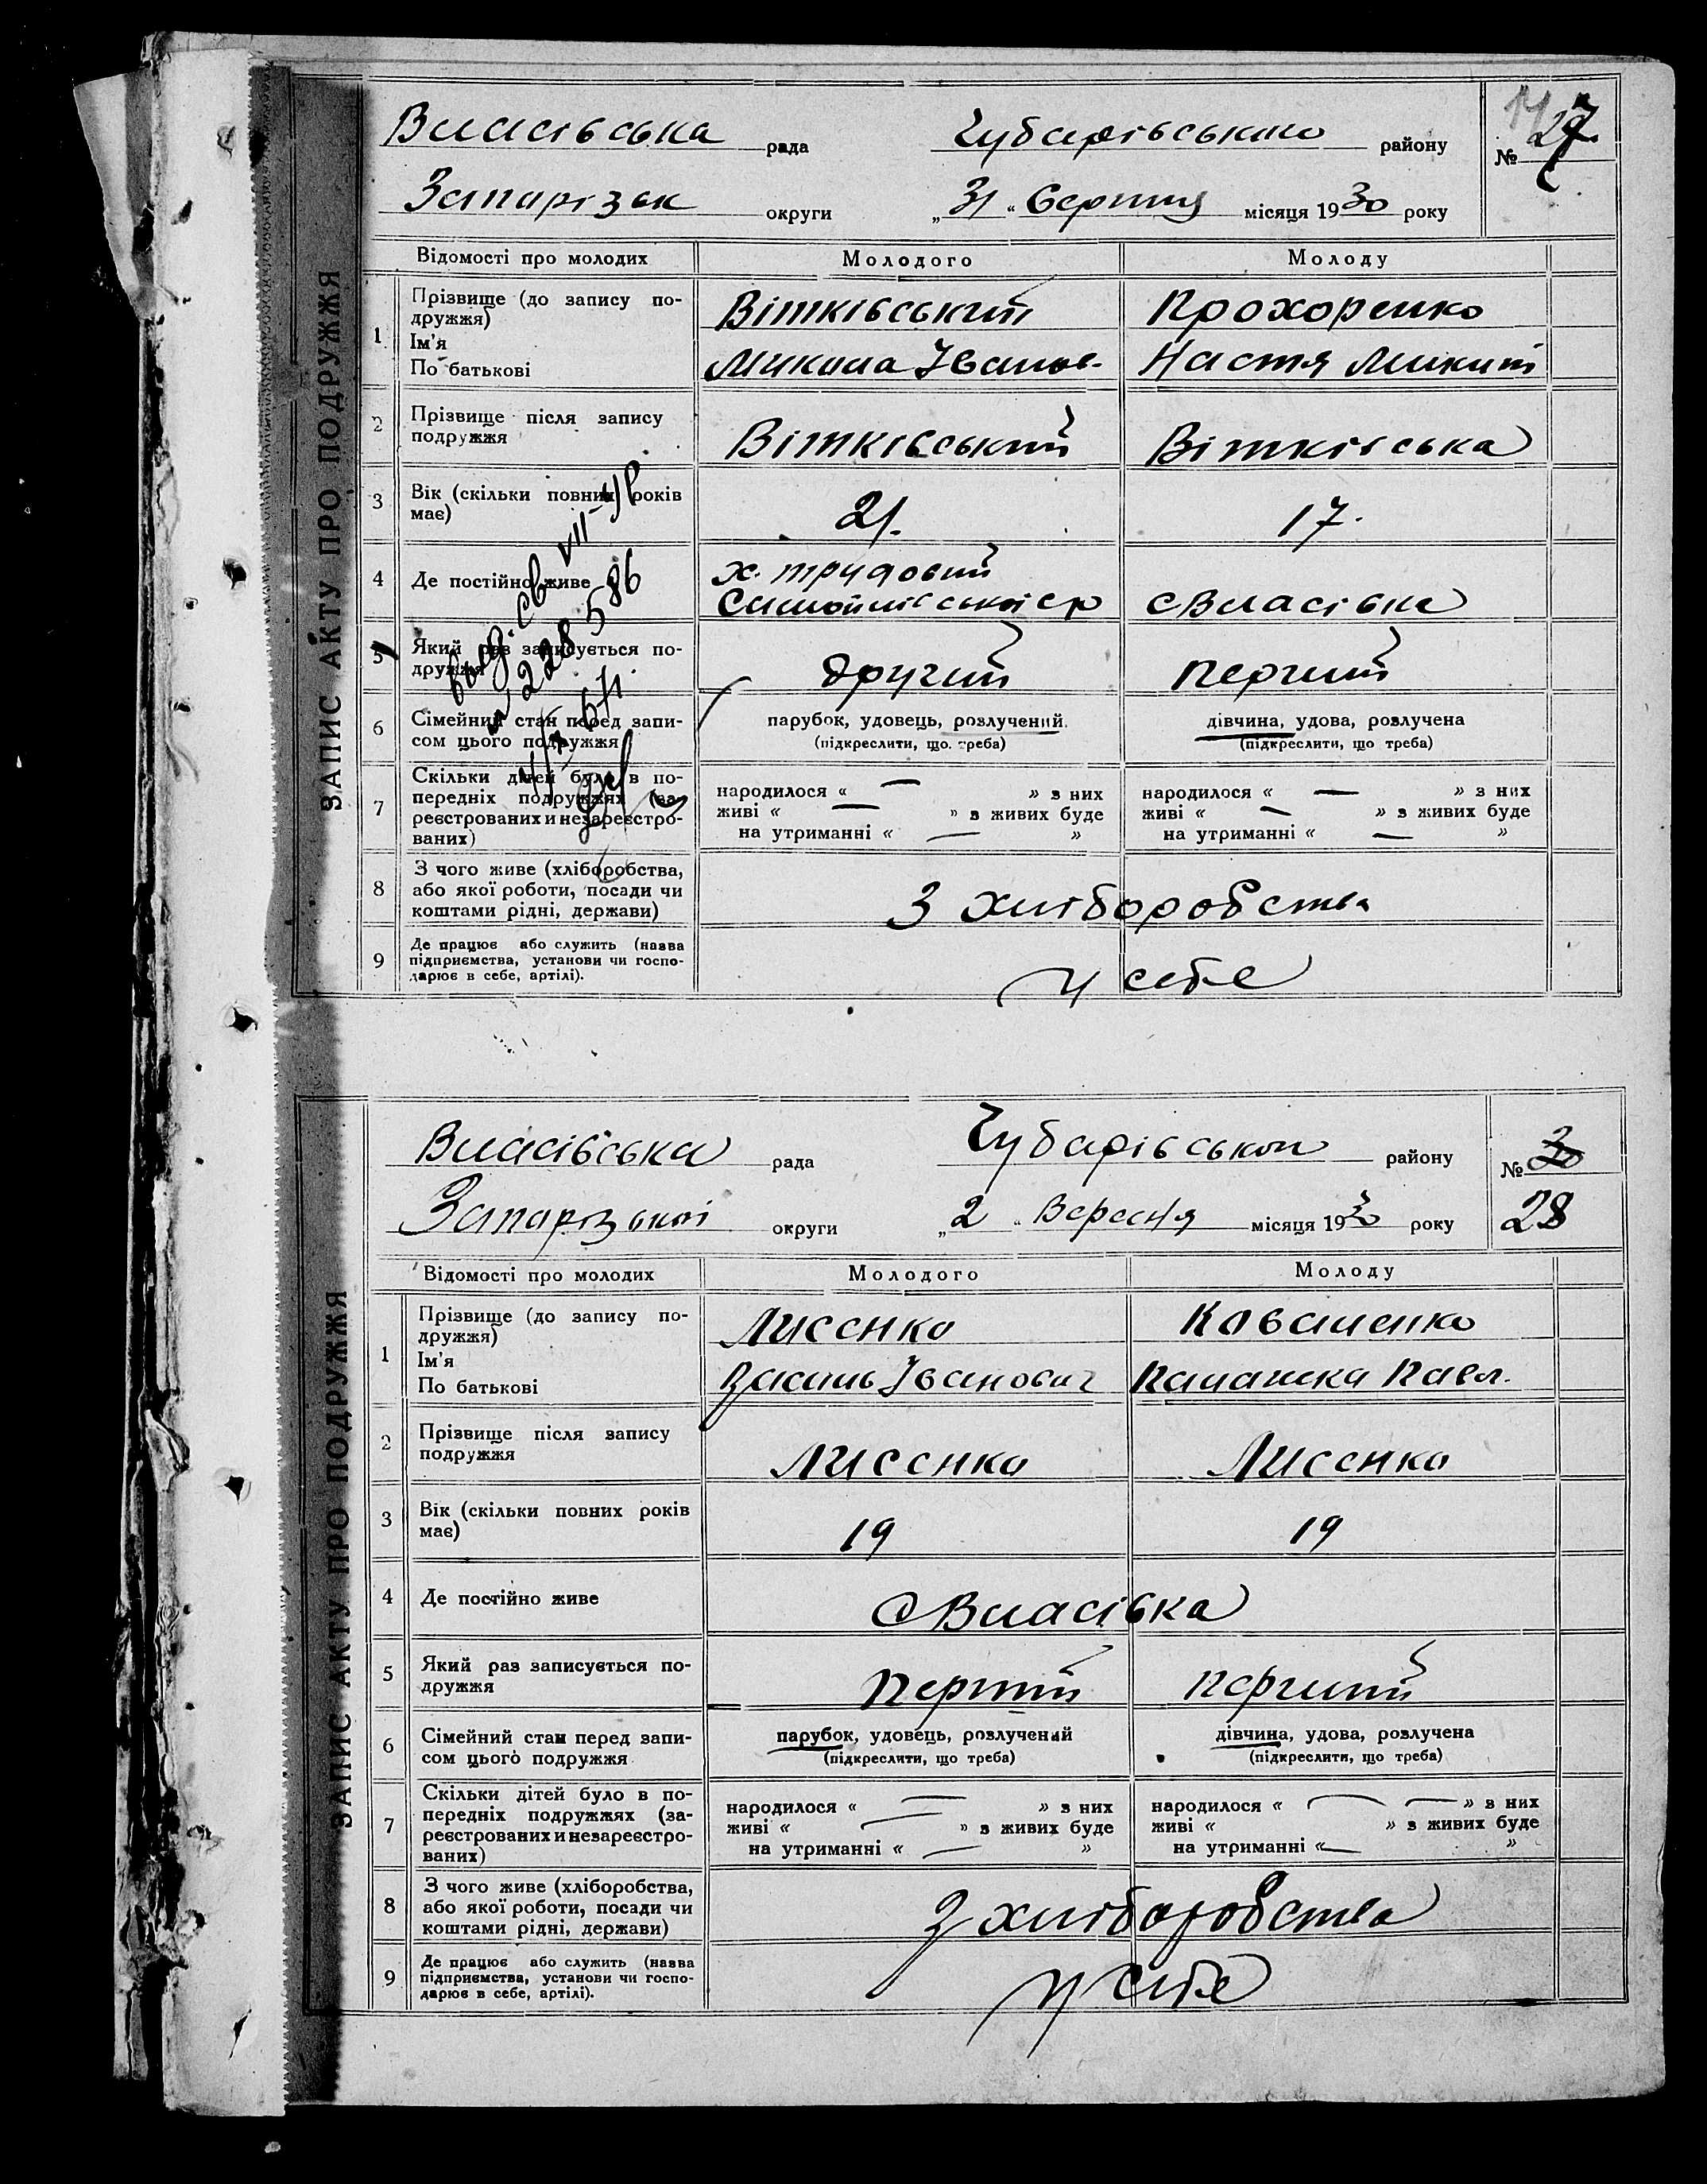 ЗАПИС АКТУ ПРО ПОДРУЖЖЯ
Власівська рада Чубарівського району № 27
Запарізьк округи „31“ Серпня місяця 1930 року
Відомості про молодих Молодого Молоду
1 Прізвище (до запису по-дружжя) Вітківський Прохоренко
Ім'я
По батькові Микола Іванов- Настя Микит
2 Прізвище після запису подружжя Вітківський Вітківська
3 Вік (скільки повних років має) 21. 17.
4 Де постійно живе х. трудовий с Власівка
5 Який раз записується по-дружжя другий перший
6 Сімейний стан перед запи-сом цього подружжя парубок, удовець, розлучений. дівчина, удова, розлучена
(підкреслити, що треба) (підкреслити, що треба)
7 Скільки дітей було в по-передніх подружжях (за-реєстрованих и незареєстро-ваних)
народилося « — » з них народилося « — » з них
живі « — » з живих буде живі « — » з живих буде
на утриманні « — » на утриманні « — »
8 З чого живе (хліборобства, або якої роботи, посади чи коштами рідні, держави) З хліборобства
9 Де працює або служить (назва підприємства, установи чи госпо-дарює в себе, артілі). у себе
выд. св VII-УР
228586
ЗАПИС АКТУ ПРО ПОДРУЖЖЯ
Власівська рада Чубарівськои району № 30
28
Запарізької округи „2“ Вересня місяця 1930 року
Відомості про молодих Молодого Молоду
1 Прізвище (до запису по-дружжя) Лисенко Коваленко
Ім'я
По батькові Василь Іванович Палашка Павл.
2 Прізвище після запису подружжя Лисенко Лисенко
3 Вік (скільки повних років має) 19 19
4 Де постійно живе с Власівка
5 Який раз записується по-дружжя перший перший
6 Сімейний стан перед запи-сом цього подружжя парубок, удовець, розлучений дівчина, удова, розлучена
(підкреслити, що треба) (підкреслити, що треба)
7 Скільки дітей було в по-передніх подружжях (за-реєстрованих и незареєстро-ваних)
народилося « — » з них народилося « — » з них
живі « — » з живих буде живі « — » з живих буде
на утриманні « — » на утриманні « — »
8 З чого живе (хліборобства, або якої роботи, посади чи коштами рідні, держави) З хліборобства
9 Де працює або служить (назва підприємства, установи чи госпо-дарює в себе, артілі). у себе